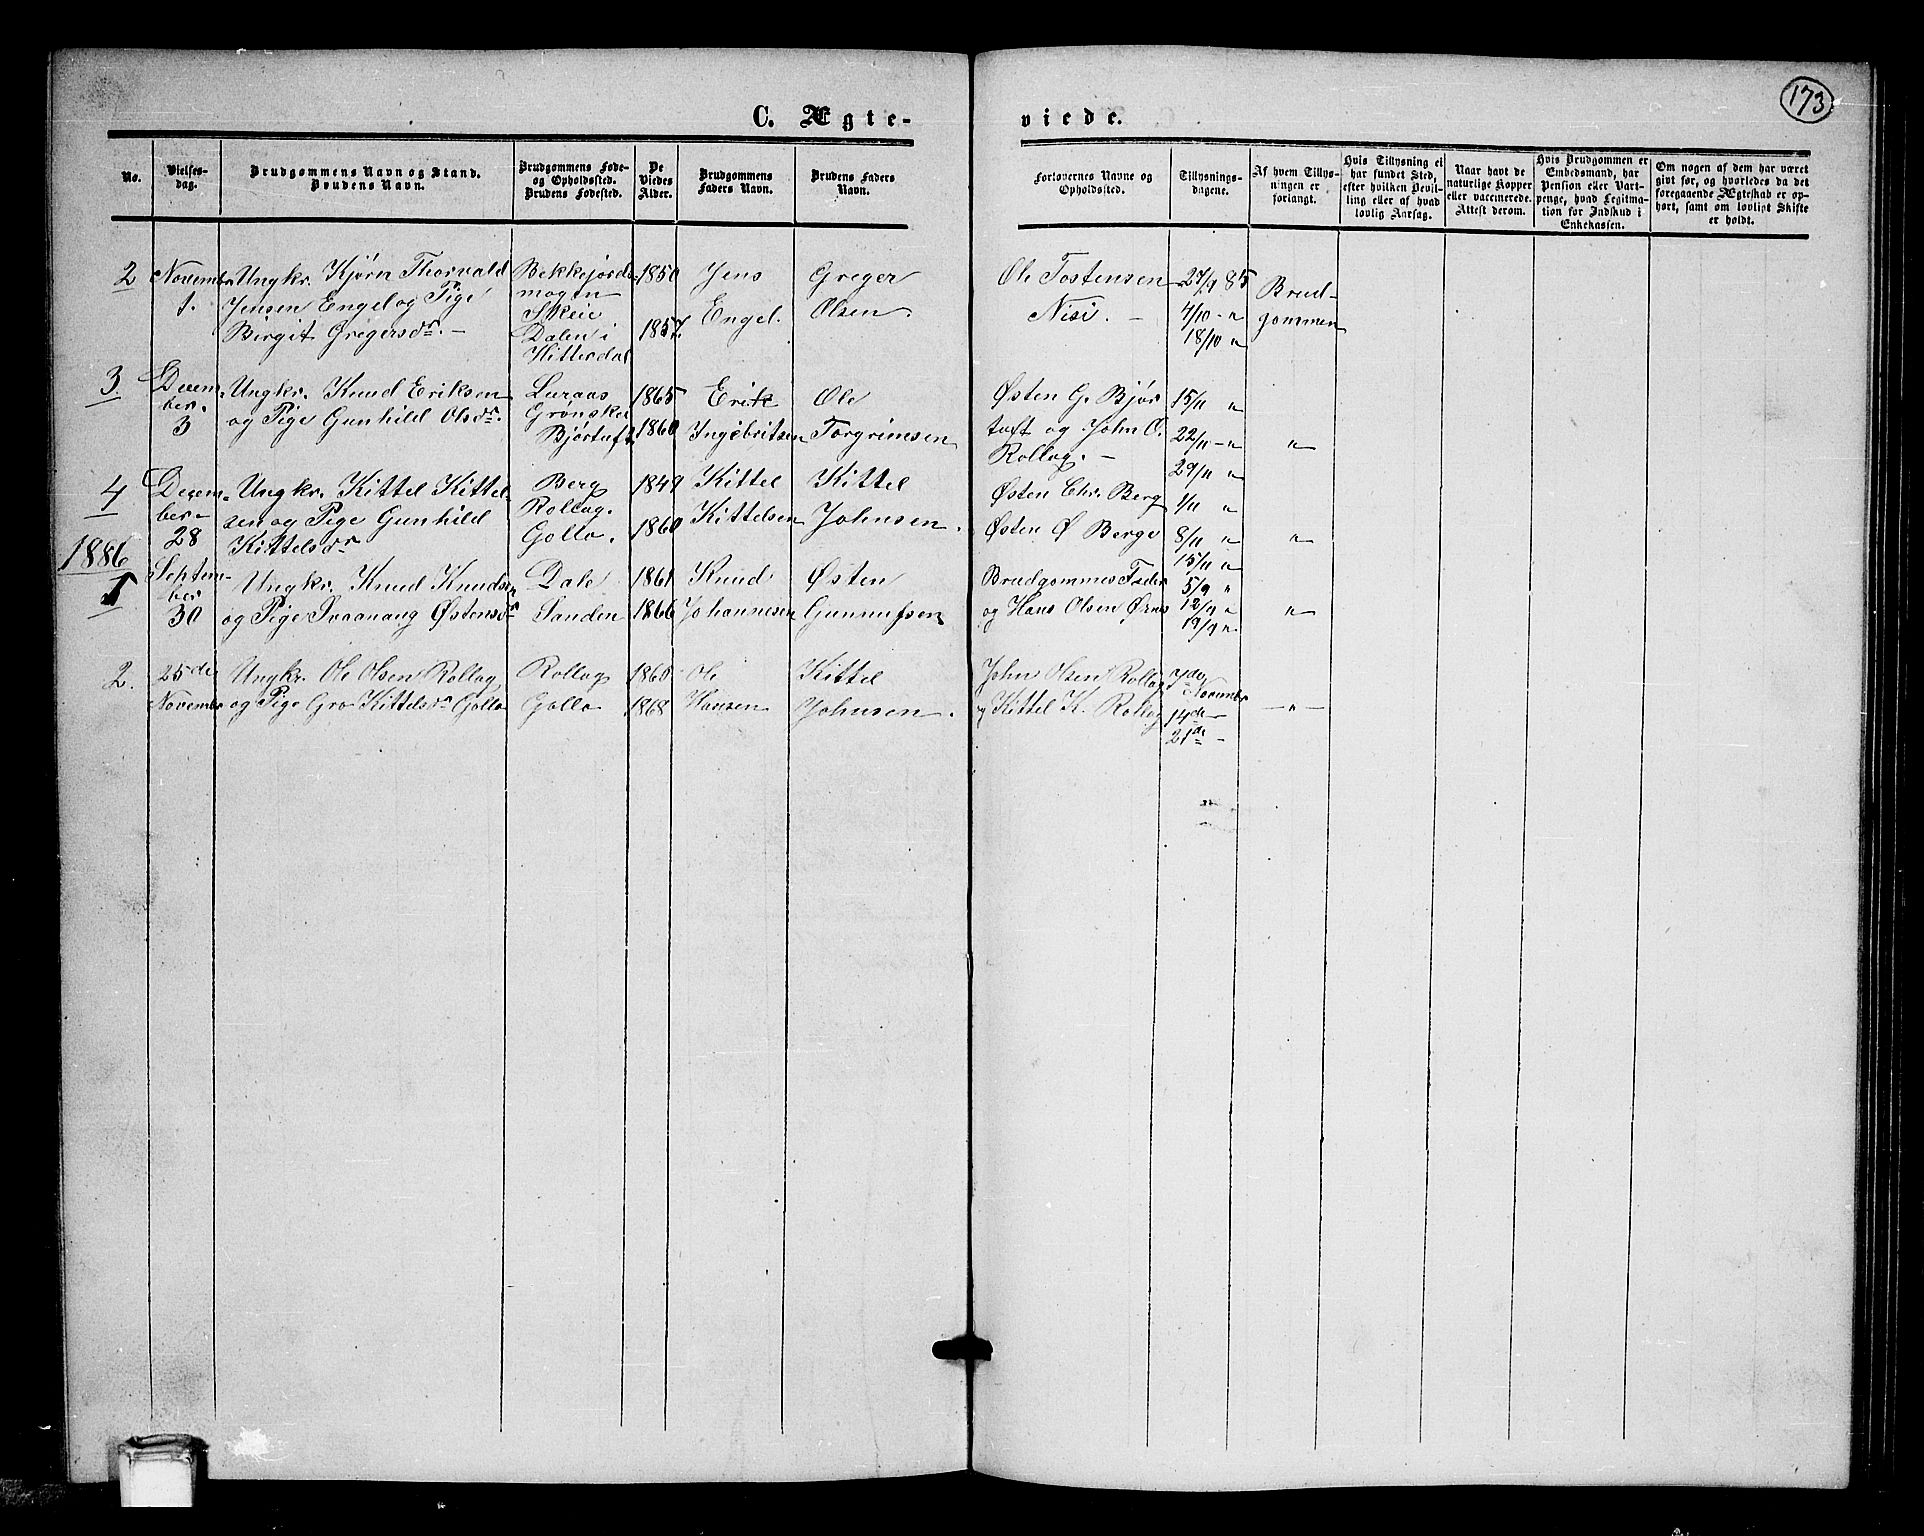 173
C. Ægte-
viede.
No.
Vielses-
dag.
Brudgommens Navn og Stand.
Brudens Navn.
Brudgommens Føde-
og Opholdssted.
Brudens Fødested.
De
Viedes
Alder.
Brudgommens
Faders Navn.
Brudens Faders
Navn.
Forlovernes Navne og
Opholdssted.
Tillysnings-
dagene.
Af hvem Tillys-
ningen er
forlangt.
Hvis Tillysning ei
har fundet Sted,
efter hvilken Bevil-
ling eller af hvad
lovlig Aarsag.
Naar havt de
naturlige Kopper
eller vaccinerede.
Attest derom.
Hvis Brudgommen er
Embedsmand, har
Pension eller Vart-
penge, hvad Legitma-
tion for Indskud i
Enkekassen.
Om nogen af dem har været
givt før, og hvorledes da det
foregaaende Ægteskab er op-
hørt, samt om lovligt Skifte
er holdt.
2
Novembr
1.
Ungkr. Kjørn Thorvald
Jensen Engel og Pige
Birgit Gregersdr. -
Bekkejorde
mogen
Skeie
Dalen i
Hitterdal
1850
1857.
Jens
Engel.
Greger
Olsen.
Ole Tostensen
Nisi. -
27/9 85
4/10 - "
18/10 "
Brud-
gommen
3.
Decem-
ber.
3
Ungkr. Knud Eriksen
og Pige Gunhild Olsdr.
Luraas
Grønskei
Bjørtuft
1865
1860
Erik
Ingebritsen
Ole
Torgrimsen
Østen G. Bjør
tuft og John O.
Rollag. -
15/11 "
22/11 - "
29/11 "
"
4
Decem-
ber -
28
Ungkr. Kittel Kittel-
sen og Pige Gunhild
Kittelsdr
Berg
Rollag.
Gollo.
1849
1860
Kittel
Kittelsen
Kittel
Johnsen.
Østen Chr. Berg
Østen Ø Berge
1/11 "
8/11 "
15/11 "
"
1886
1
Septem-
ber
30
Ungkr. Knud Knudsen
og Pige Svaanaug Østensdr
Dale
Sanden
1861
1866
Knud
Johannesen
Østen
Gunnufsen
Brudgommes Fader
og Hans Olsen Ørnes
5/9 "
12/9 "
19/9 "
"
2.
25de
Novembr
Ungkr. Ole Olsen Rollag
og Pige Gro Kittelsdr Gollo
Rollag
Gollo
1865
1868
Ole
Hansen
Kittel
Johnsen.
John Olsen Rollag
og Kittel K. Rollag
7de
Novembr
14de -
21de -
- " -